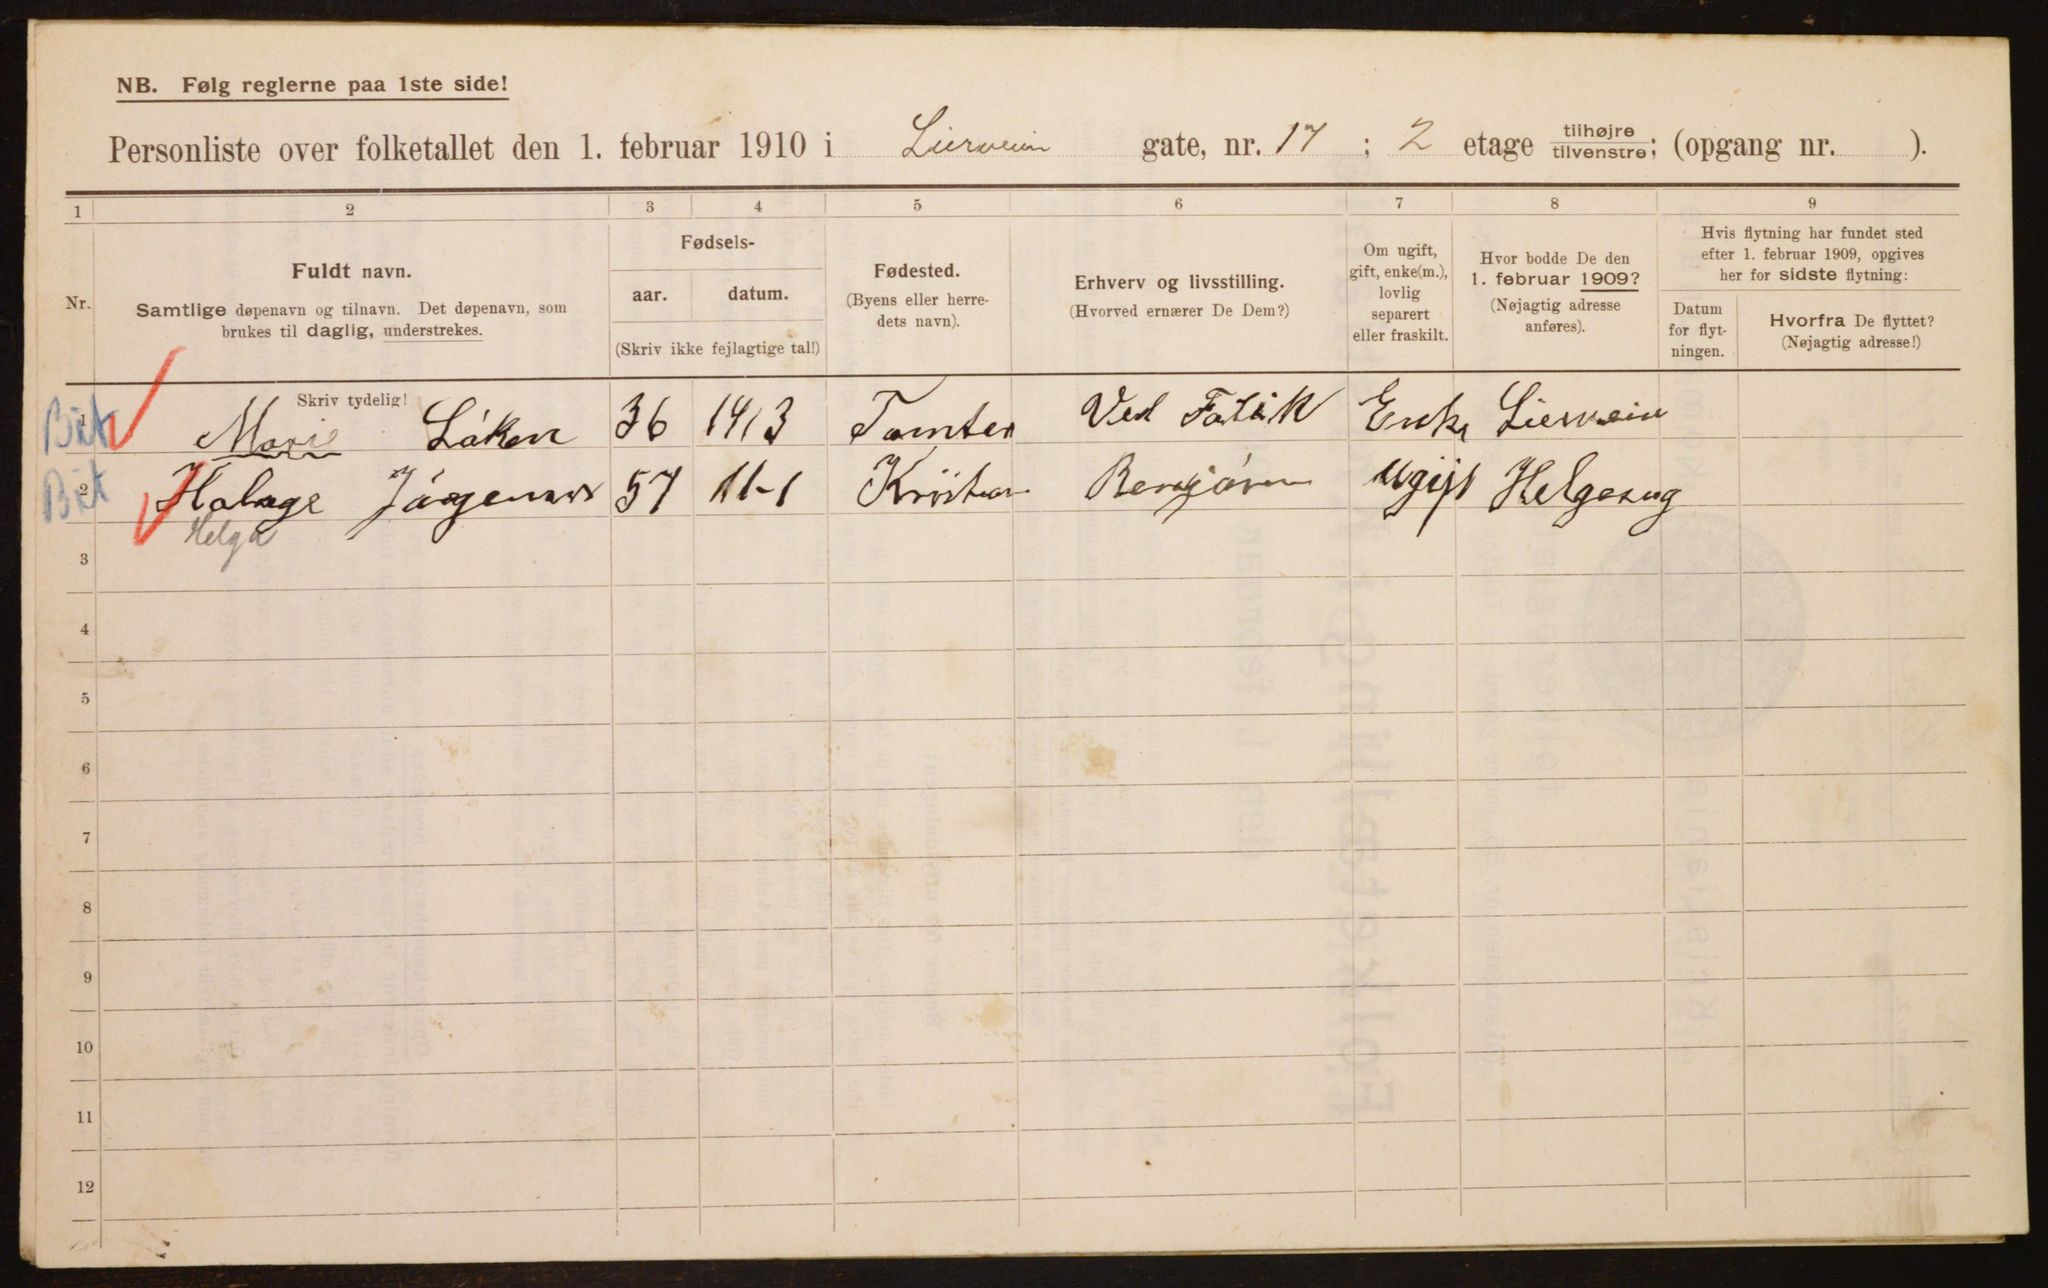 NB. Følg reglerne paa 1ste side!
Personliste over folketallet den 1. februar 1910 i Lierveien gate, nr. 17 ; 2 etage tilhøjre/tilvenstre; (opgang nr. ).
1 2 3 4 5 6 7 8 9
Nr.
Fuldt navn.
Samtlige døpenavn og tilnavn. Det døpenavn, som
brukes til daglig, understrekes.
Skriv tydelig!
Fødsels-
aar. datum.
(Skriv ikke fejlagtige tal!)
Fødested.
(Byens eller herre-
dets navn).
Erhverv og livsstilling.
(Hvorved ernærer De Dem?)
Om ugift,
gift, enke(m.),
lovlig
separert
eller fraskilt.
Hvor bodde De den
1. februar 1909?
(Nøjagtig adresse
anføres).
Hvis flytning har fundet sted
efter 1. februar 1909, opgives
her for sidste flytning:
Datum
for flyt-
ningen.
Hvorfra De flyttet?
(Nøjagtig adresse!)
1 Marie Løken 36 14/3 Tomter Ved Fabrik Enke Lierveien
2 57 11-1 Ugift
Helga
3
4
5
6
7
8
9
10
11
12